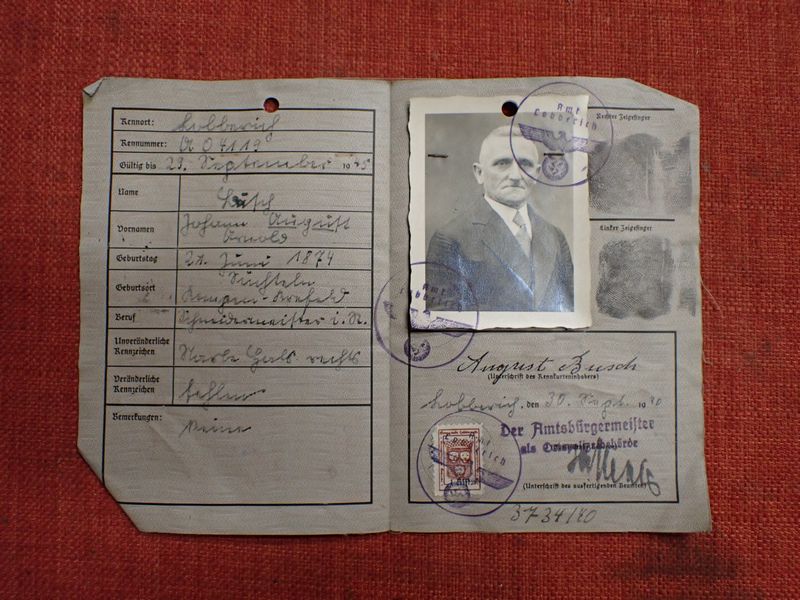 Kennort: Lobberich
Kennummer: A 04119
Gültig bis 29. September 1945
Name Busch
Vornamen Johann August
Arnold
Geburtstag 21. Juni 1874
Geburtsort Süchteln
Kempen-Krefeld
Beruf Schneidermeister i. R.
Unveränderliche
Kennzeichen Narbe Hals rechts
Veränderliche
Kennzeichen fehlen
Bemerkungen: Keine
Amt
Lobberich
Rechter Zeigefinger
Linker Zeigefinger
Amt
Lobberich
August Busch
(Unterschrift des Kennkarteninhabers)
Lobberich, den 30. Sept. 1940
Der Amtsbürgermeister
als Ortspolizeibehörde
(Unterschrift des ausfertigenden Beamten)
Lobberich
3734/40